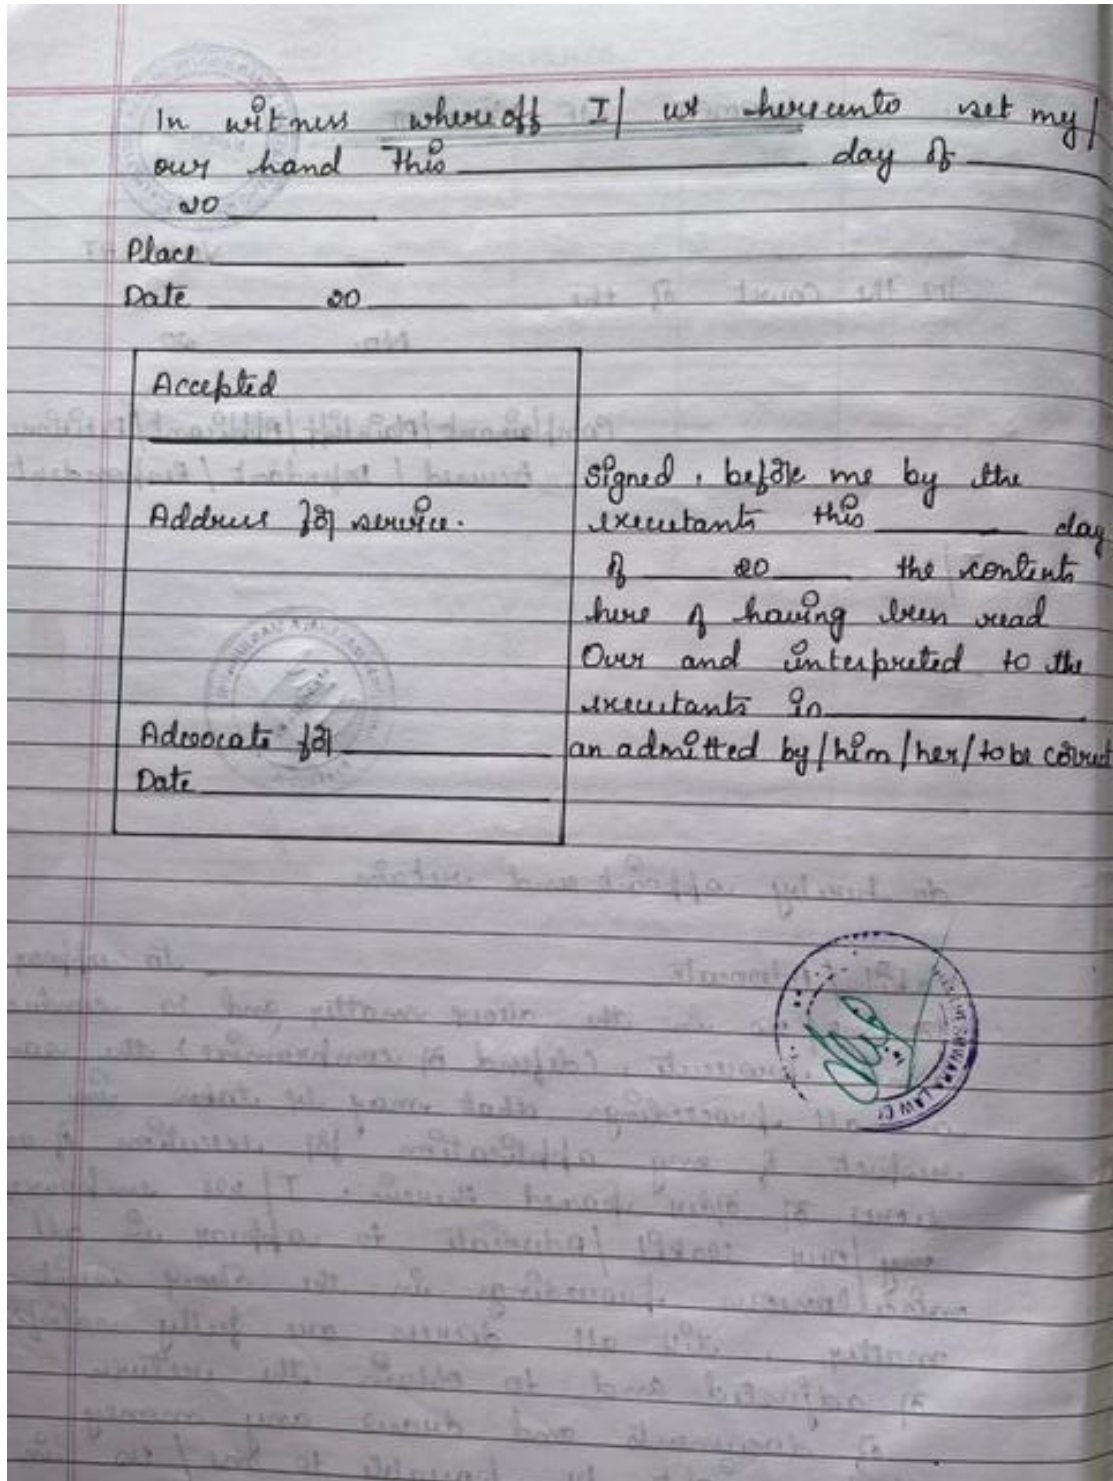 In witness whereoff I/ we hereunto set my/
our hand This ________ day of ________
20 ________
Place ________
Date ____ 20 ____
Accepted
Address for service.
Advocate for ________
Date ________
signed, before me by the
executants this ________ day
of ____ 20 ____ the contents
here of having been read
Over and interpreted to the
executants in ________
an admitted by/him/her/to be correct
LAW